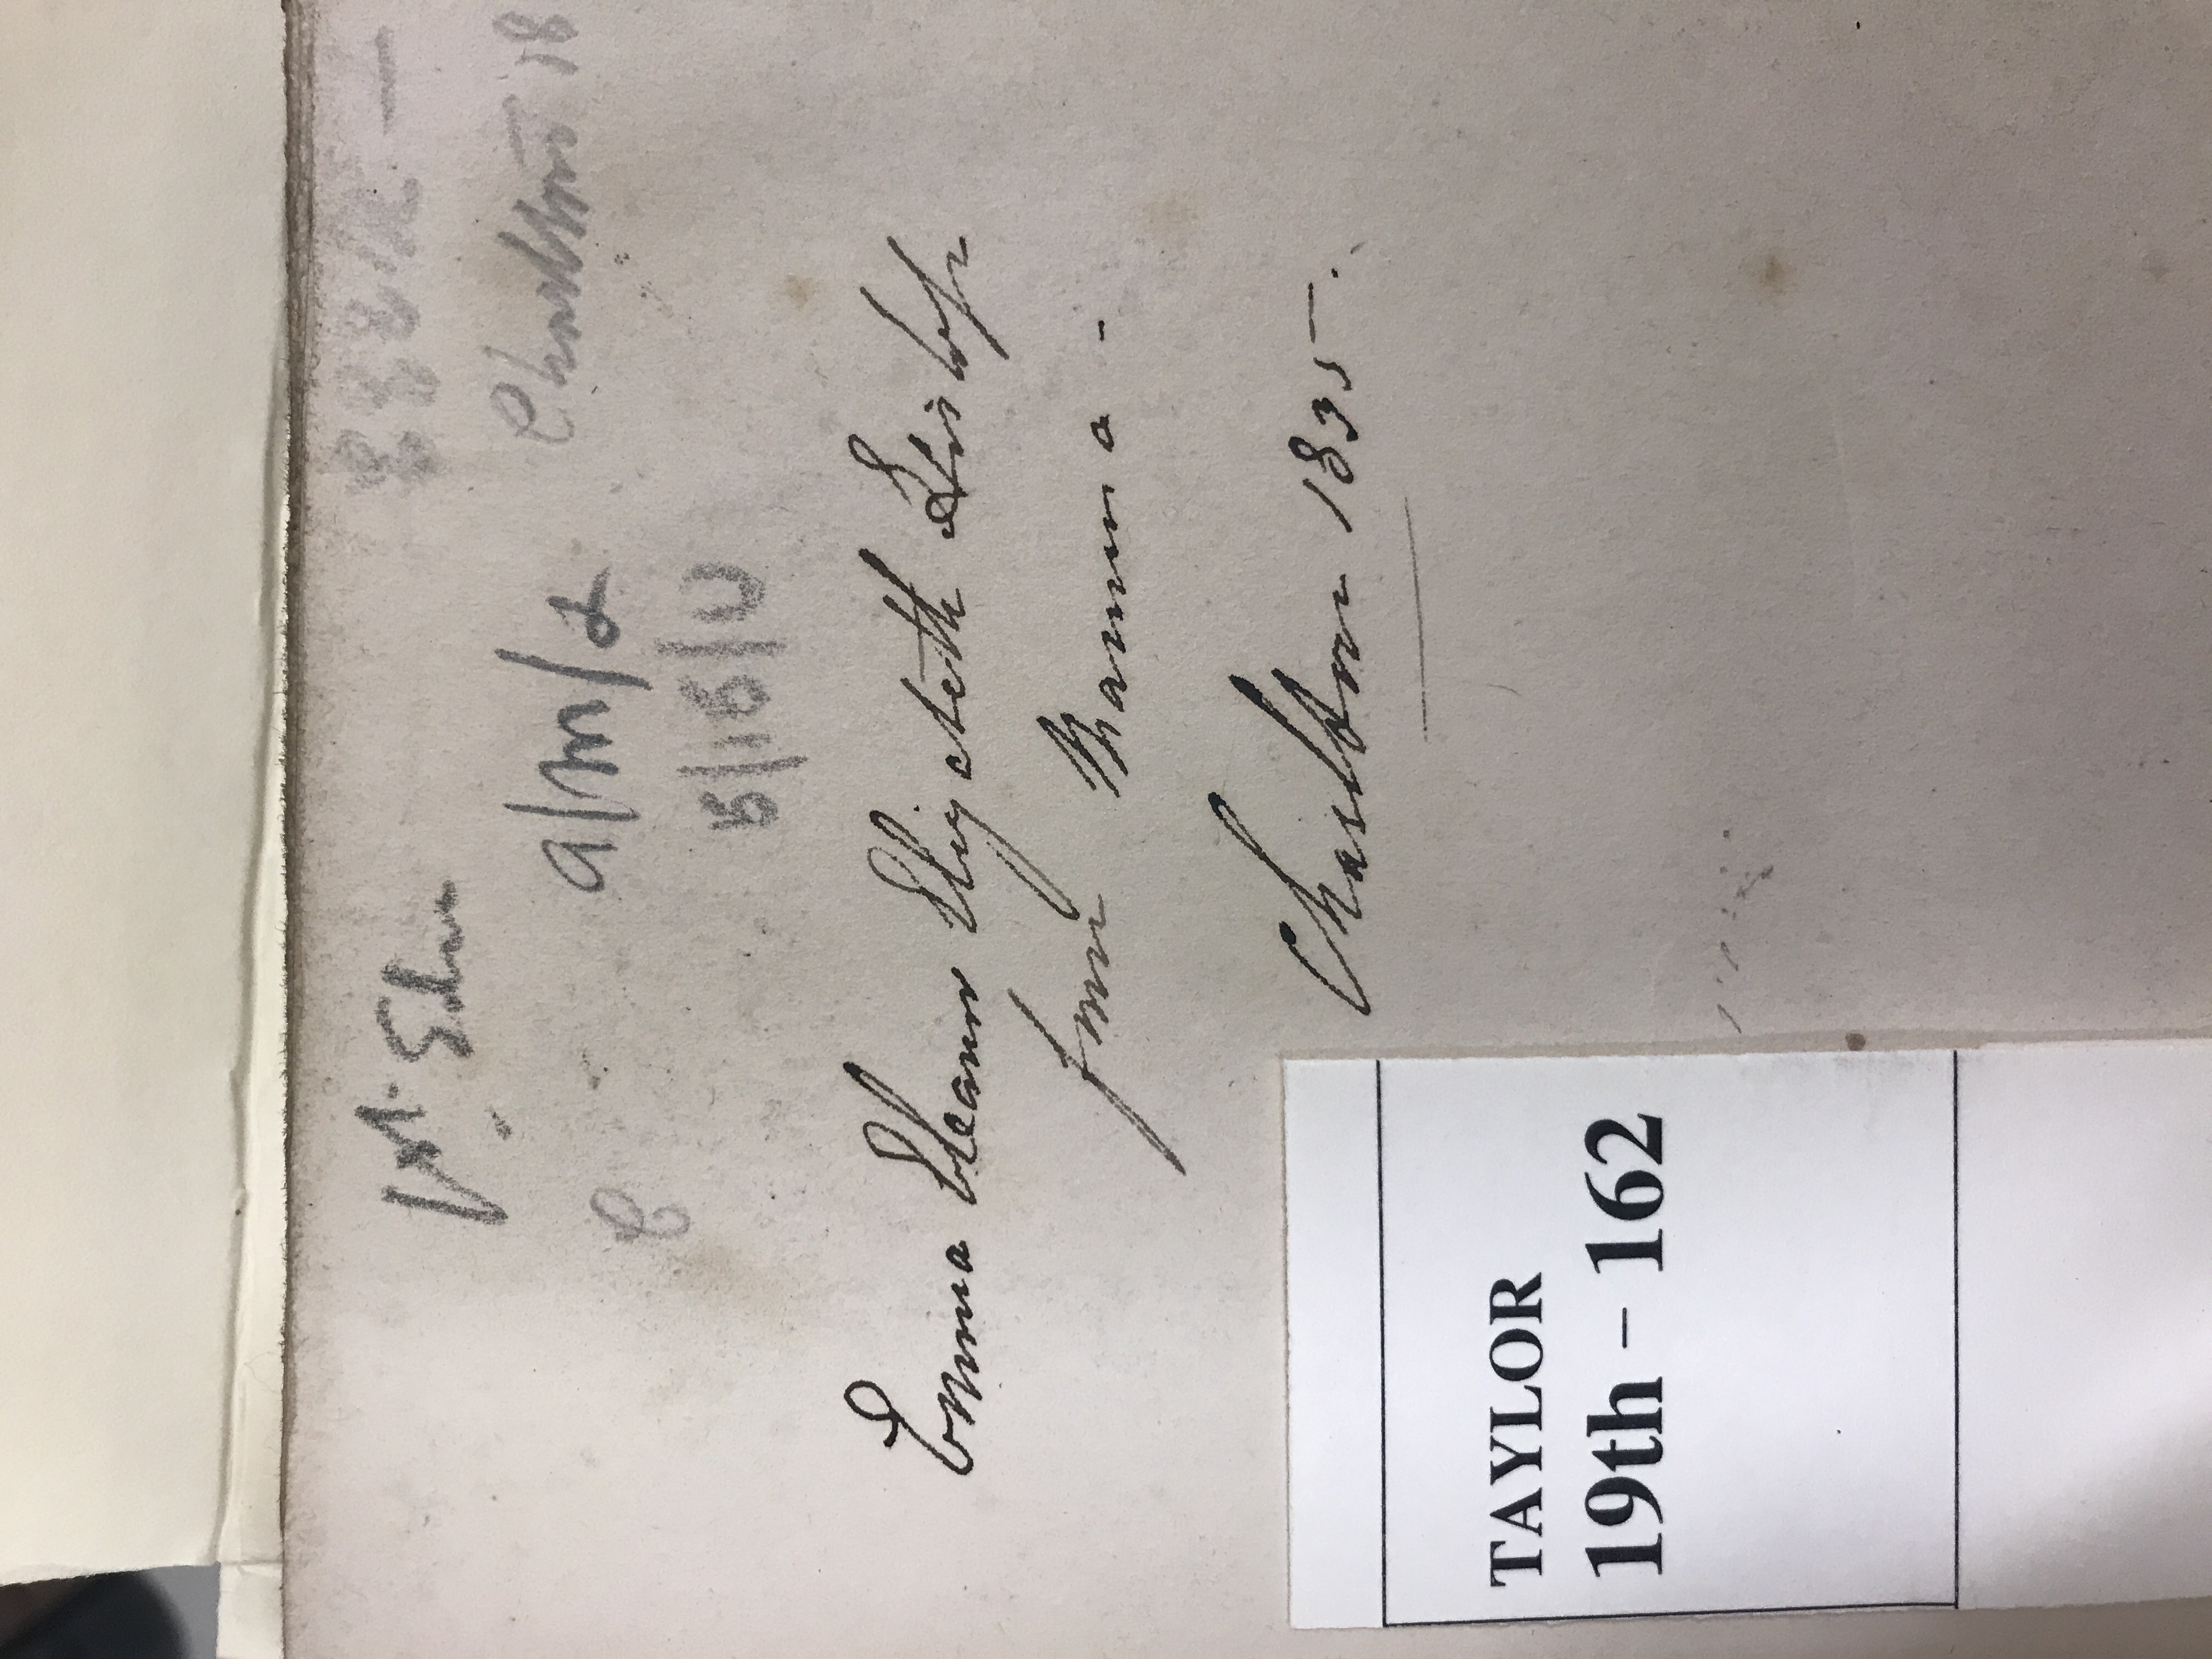 1st. Edn
Charlton 18
a/m/2
C
5/15/U
Emma Eleanor Elizabeth Hislop
from Mamma -
Charlton 1835.
TAYLOR
19th - 162